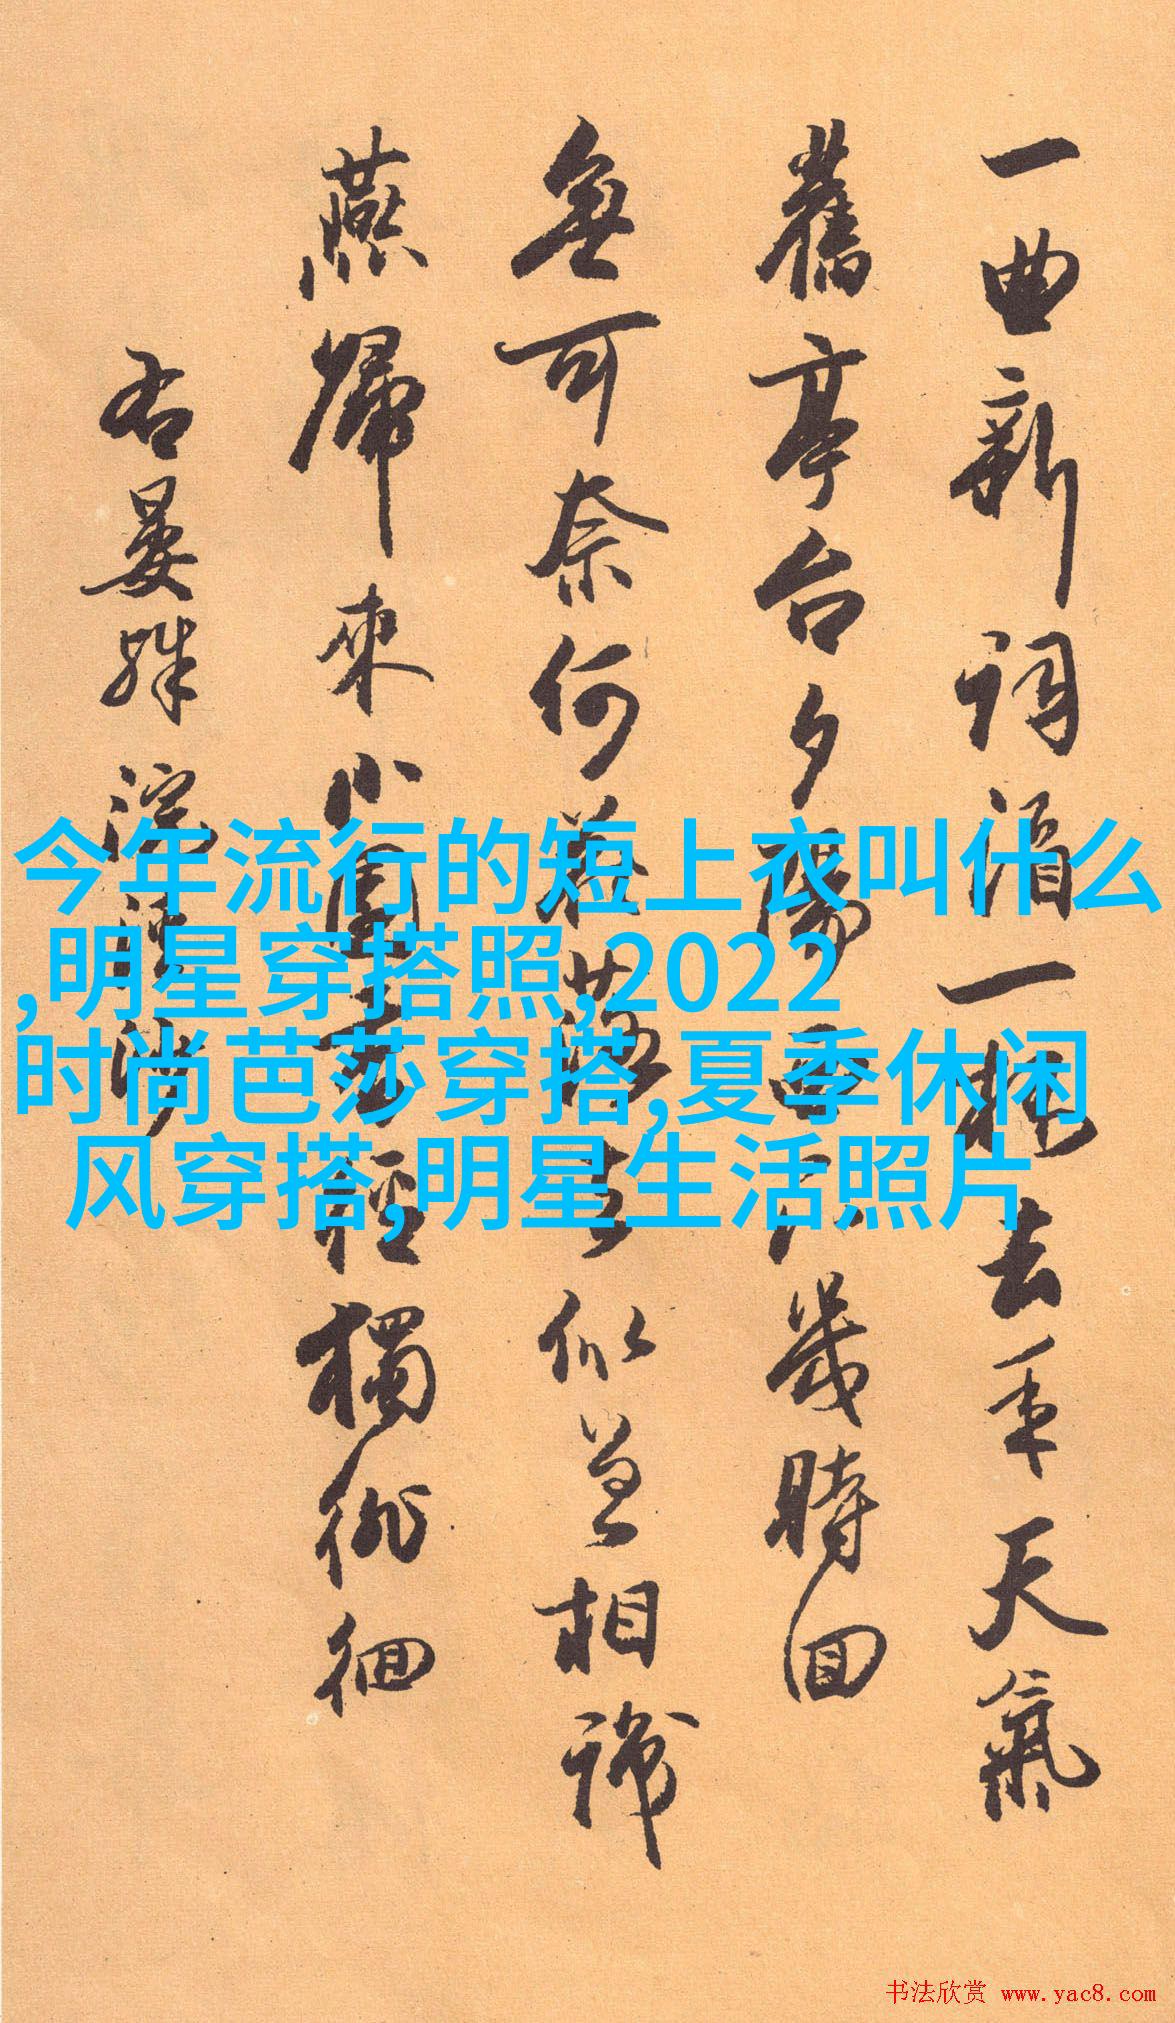 一曲新詞酒一杯去年天氣
舊亭台夕陽西下幾時回
無可奈何花落去似曾相識
燕歸來小園香徑獨徘徊
右晏殊浣溪沙
今年流行的短上衣叫什么
,明星穿搭照,2022
时尚芭莎穿搭,夏季休闲
风穿搭,明星生活照片
书法欣赏 www.yac8.com